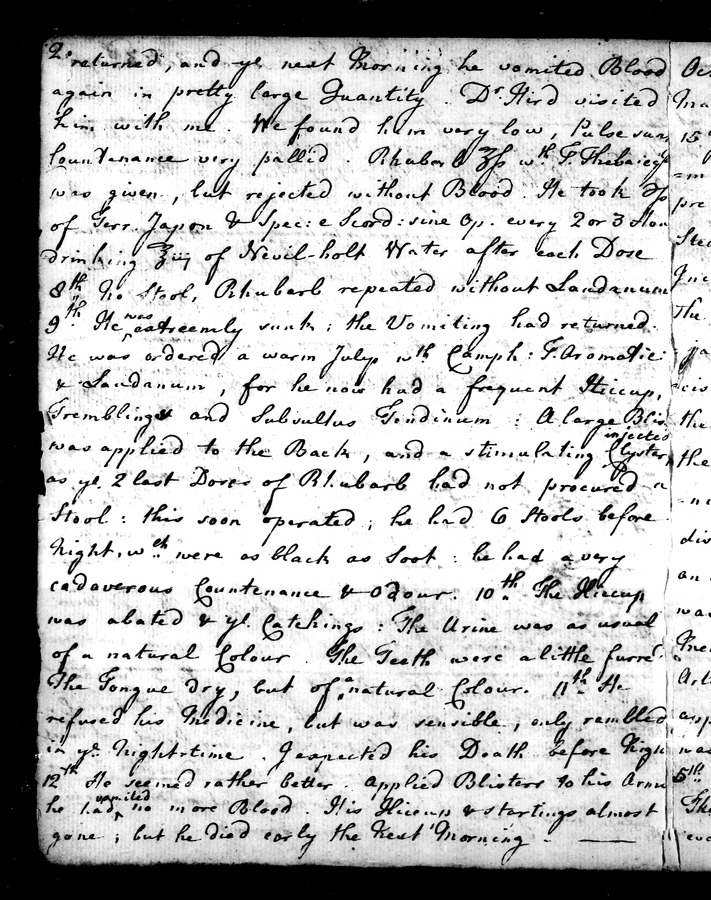 2
returned, and ye next Morning he vomited Blood
again in pretty large Quantity. Dr Hird visited
him with me. We found him very low, Pulse
Countenance very pallid. Rhubarb ʒſs wth T. Thebaic
was given, but rejected without Blood. He took ʒſs
of Terr. Japon & Spec: e Scord: sine Op. every 2 or 3 Hou
drinking ℥iij of Nevil-holt Water after each Dose
8th No Stool, Rhubarb repeated without Laudanum
9th He was extreemly sunk; the Vomiting had returned.
He was ordered a warm Julep wth Camph: T. Aromatic:
& Laudanum, for he now had a frequent Hiccup,
Tremblings and Subsultus Tendinum: A large Blis
was applied to the Back, and a stimulating Clyster injected
as ye 2 last Doses of Rhubarb had not procured a
Stool: this soon operated; he had 6 Stools before
Night, wch were as black as Soot: he had a very
cadaverous Countenance & Odour. 10th The Hiccup
was abated & ye Catchings: The Urine was as usual
of a natural Colour. The Teeth were a little furred
The Tongue dry, but of a natural Colour. 11th He
refused his Medicine, but was sensible, only rambled
in ye Night-time. I expected his Death before Nigh
12th He seemed rather better. applied Blisters to his Arms
he had vomited no more Blood. His Hiccup & startings almost
gone; but he died early the Next Morning.
15
5th